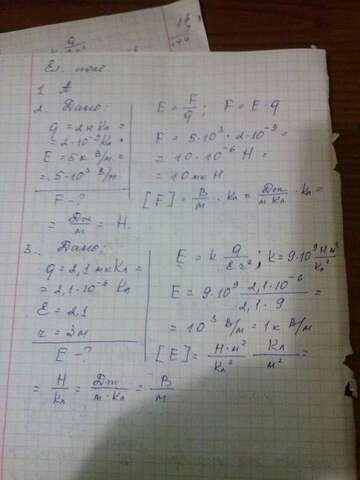 Эл. поле
1. А
2. Дано:
q = 2 нКл =
= 2·10⁻⁹ Кл
E = 5 к В/м =
= 5·10³ В/м
F - ?
E = F/q ; F = E·q
F = 5·10³ · 2·10⁻⁹ =
= 10·10⁻⁶ Н =
= 10 мк Н
[F] = В/м · Кл = Дж/м Кл · Кл =
= Дж/м = Н.
3. Дано:
q = 2,1 мкКл =
= 2,1·10⁻⁶ Кл
ε = 2,1
r = 3м
E - ?
E = k q/ε r² ; k = 9·10⁹ Н м²/Кл²
E = 9·10⁹ 2,1·10⁻⁶/2,1·9 =
= 10³ В/м = 1к В/м
[E] = Н·м²/Кл² Кл/м² =
= Н/Кл = Дж/м·Кл = В/м